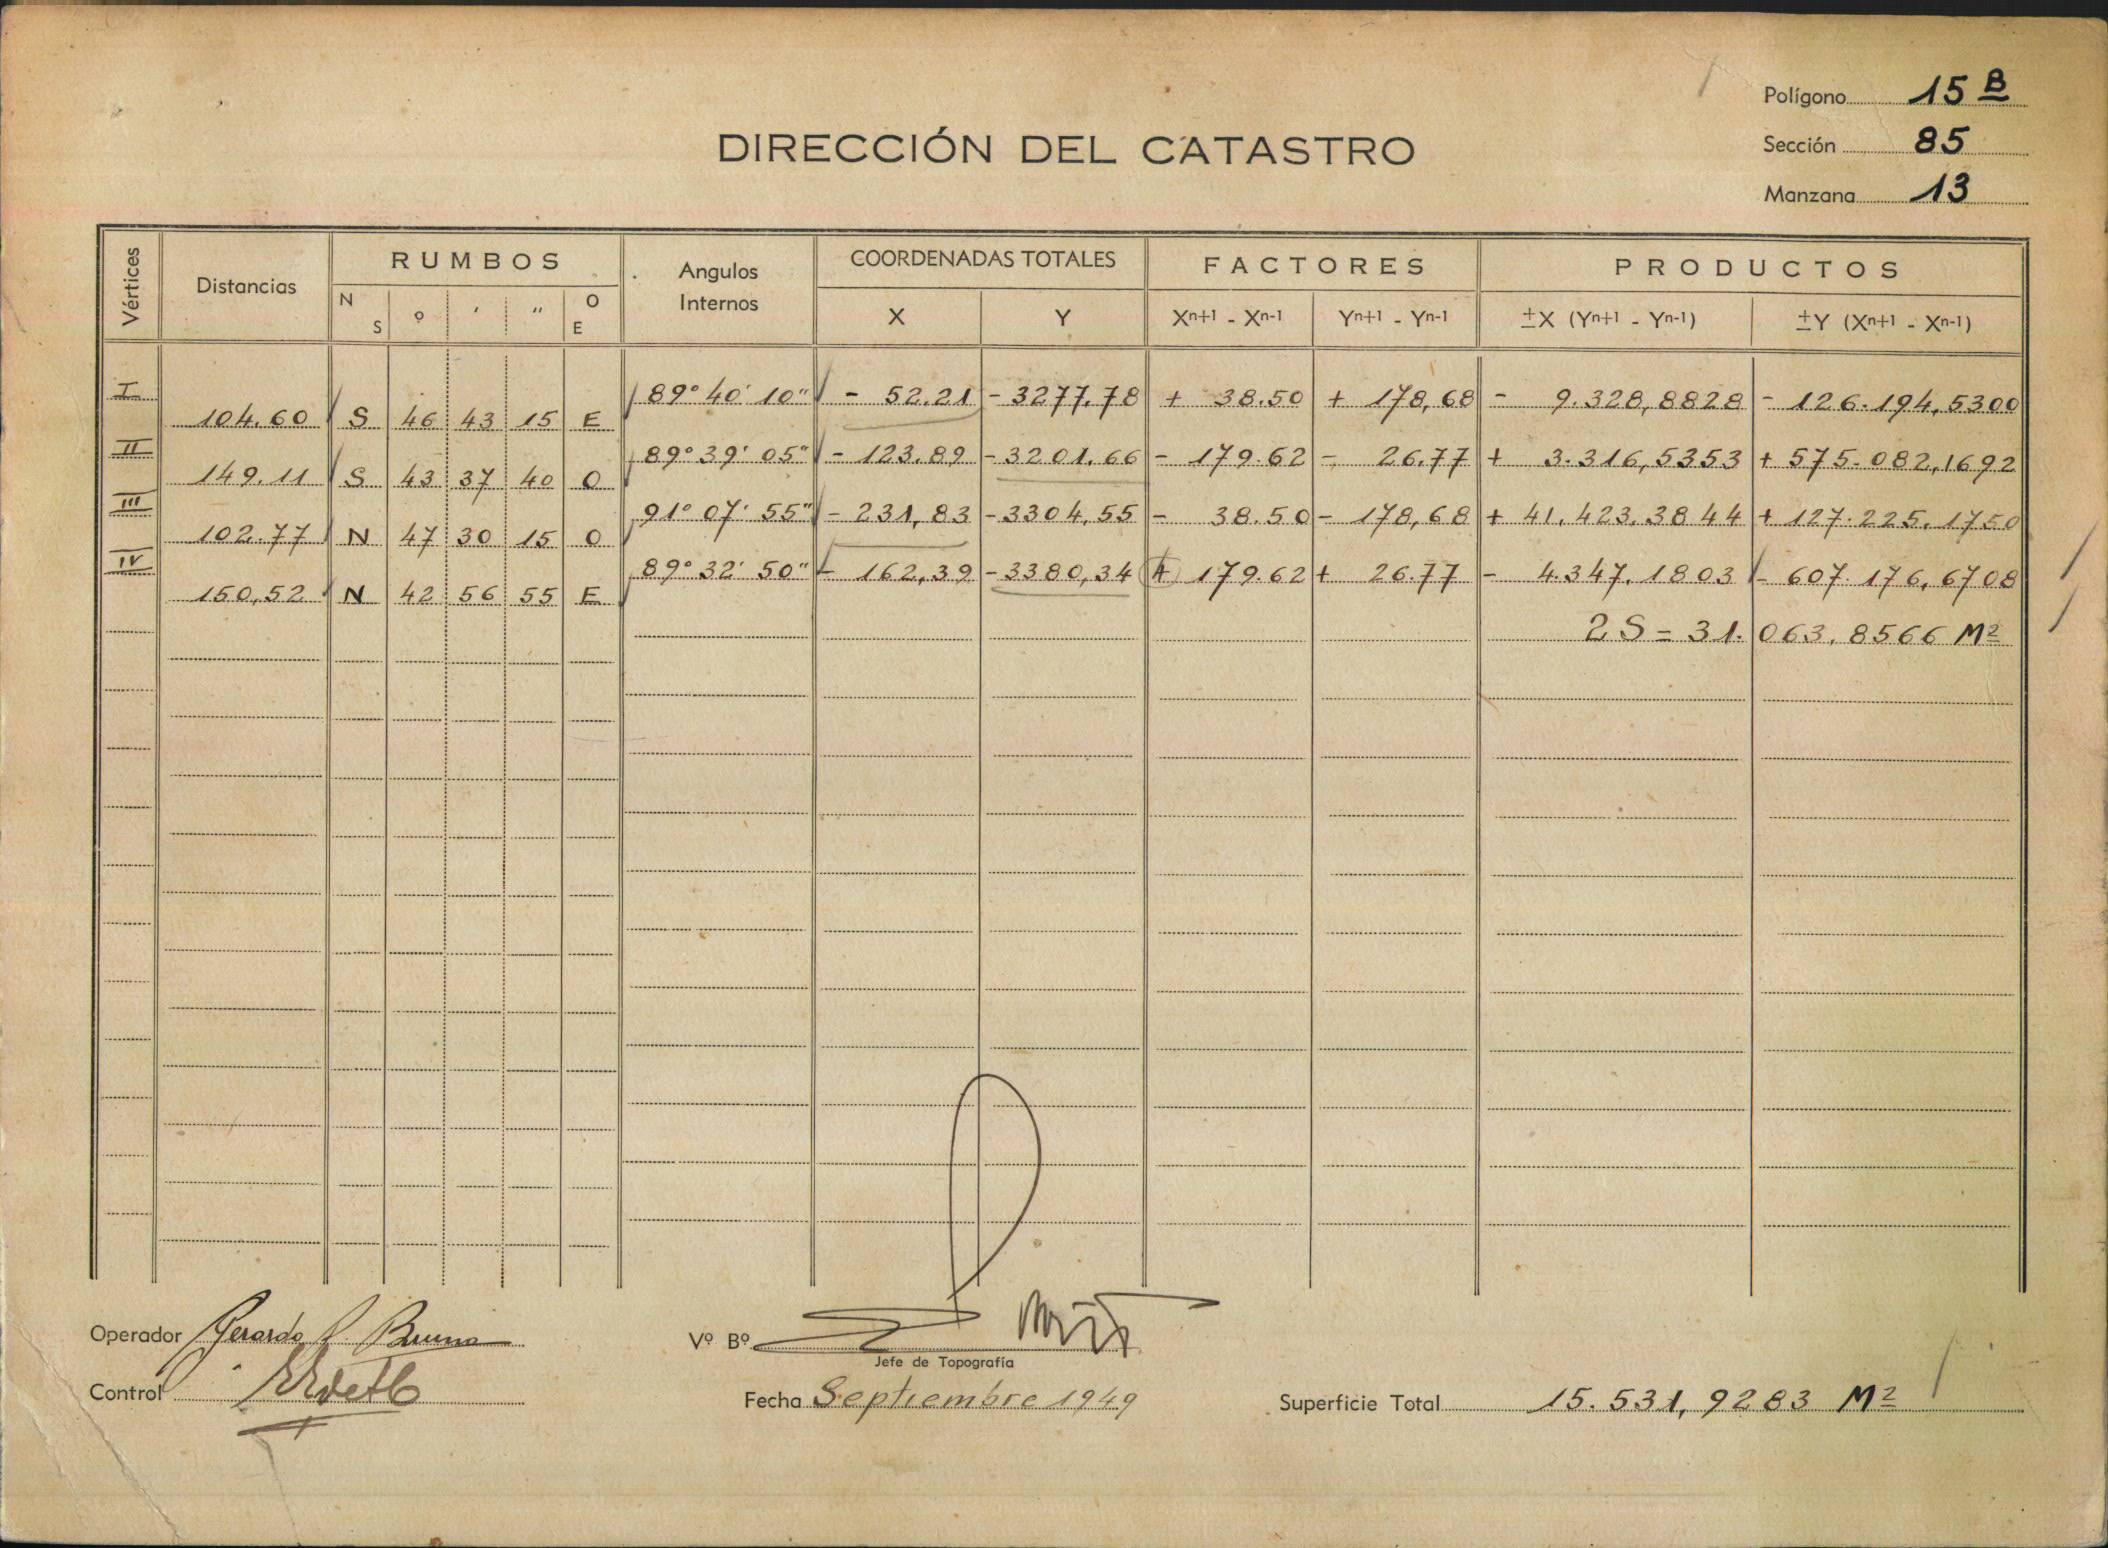 Polígono 15 B
DIRECCIÓN DEL CATASTRO
Sección 85
Manzana 13
Vértices Distancias RUMBOS Angulos Internos COORDENADAS TOTALES FACTORES PRODUCTOS
N S º ′ ″ O E X Y Xn+1 - Xn-1 Yn+1 - Yn-1 ±X (Yn+1 - Yn-1) ±Y (Xn+1 - Xn-1)
I 89° 40' 10" - 52.21 - 3277.78 + 38.50 + 178,68 - 9.328,8828 - 126.194,5300
104.60 S 46 43 15 E
II 89° 39' 05" - 123.89 - 3201.66 - 179.62 - 26.77 + 3.316,5353 + 575.082,1692
149.11 S 43 37 40 O
III 91° 07' 55" - 231,83 - 3304,55 - 38.50 - 178,68 + 41.423.3844 + 127.225.1750
102.77 N 47 30 15 O
IV 89° 32' 50" - 162,39 - 3380,34 + 179.62 + 26.77 - 4.347.1803 - 607.176,6708
150,52 N 42 56 55 E
2 S = 31.063.8566 M²
Operador Gerardo Bruno
Vº Bº
Jefe de Topografía
Control
Fecha Septiembre 1949
Superficie Total 15.531,9283 M²